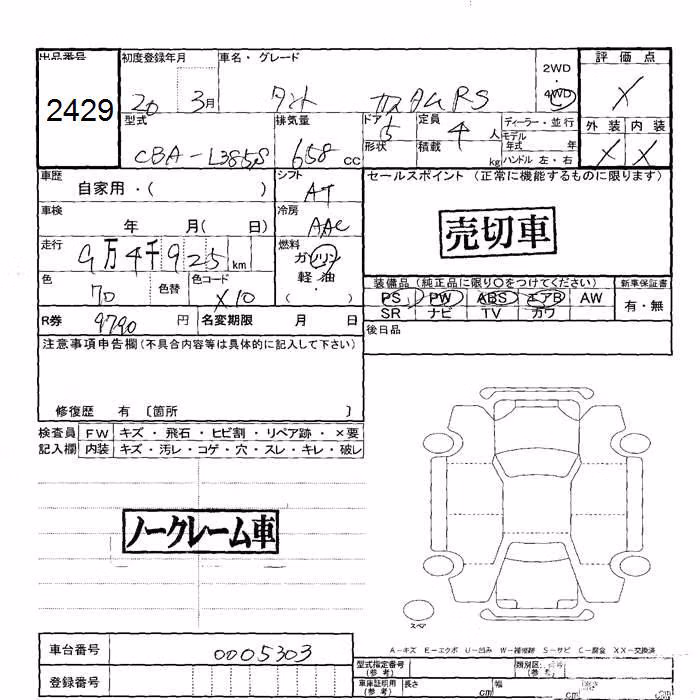 出品番号 初度登録年月 車名・グレード 評価点
2429 20 3月 タント カスタムRS 2WD 4WD X
型式 排気量 ドア 定員 ディーラー・並行 外装 内装
CBA-L385S 658 cc 5 4 人 モデル年式 年 X X
形状 積載 kg ハンドル 左・右
車歴 自家用・( ) シフト AT セールスポイント (正常に機能するものに限ります)
車検 年 月( 日) 冷房 AAC 売切車
走行 9万4千925 km 燃料 ガソリン 軽油
色 70 色替 色コード X10 装備品 (純正品に限り○をつけてください) 新車保証書
PS PW ABS エアB AW 有・無
SR ナビ TV カワ
R券 9790 円 名変期限 月 日 後日品
注意事項申告欄(不具合内容等は具体的に記入して下さい)
修復歴 有 〔箇所 〕
検査員 FW キズ・飛石・ヒビ割・リペア跡・×要
記入欄 内装 キズ・汚レ・コゲ・穴・スレ・キレ・破レ
ノークレーム車
スペア
A－キズ E－エクボ U－凹み W－補修跡 S－サビ C－腐食 XX－交換済
車台番号 0005303 型式指定番号(参考) 類別区
登録番号 車庫証明用(参考) 長さ cm 幅 cm 高さ cm